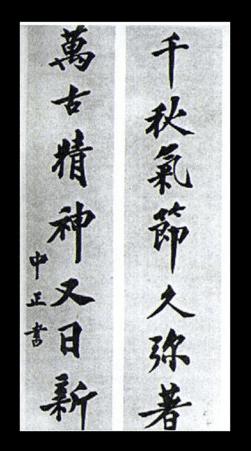 千秋氣節久彌著
萬古精神又日新
中正書